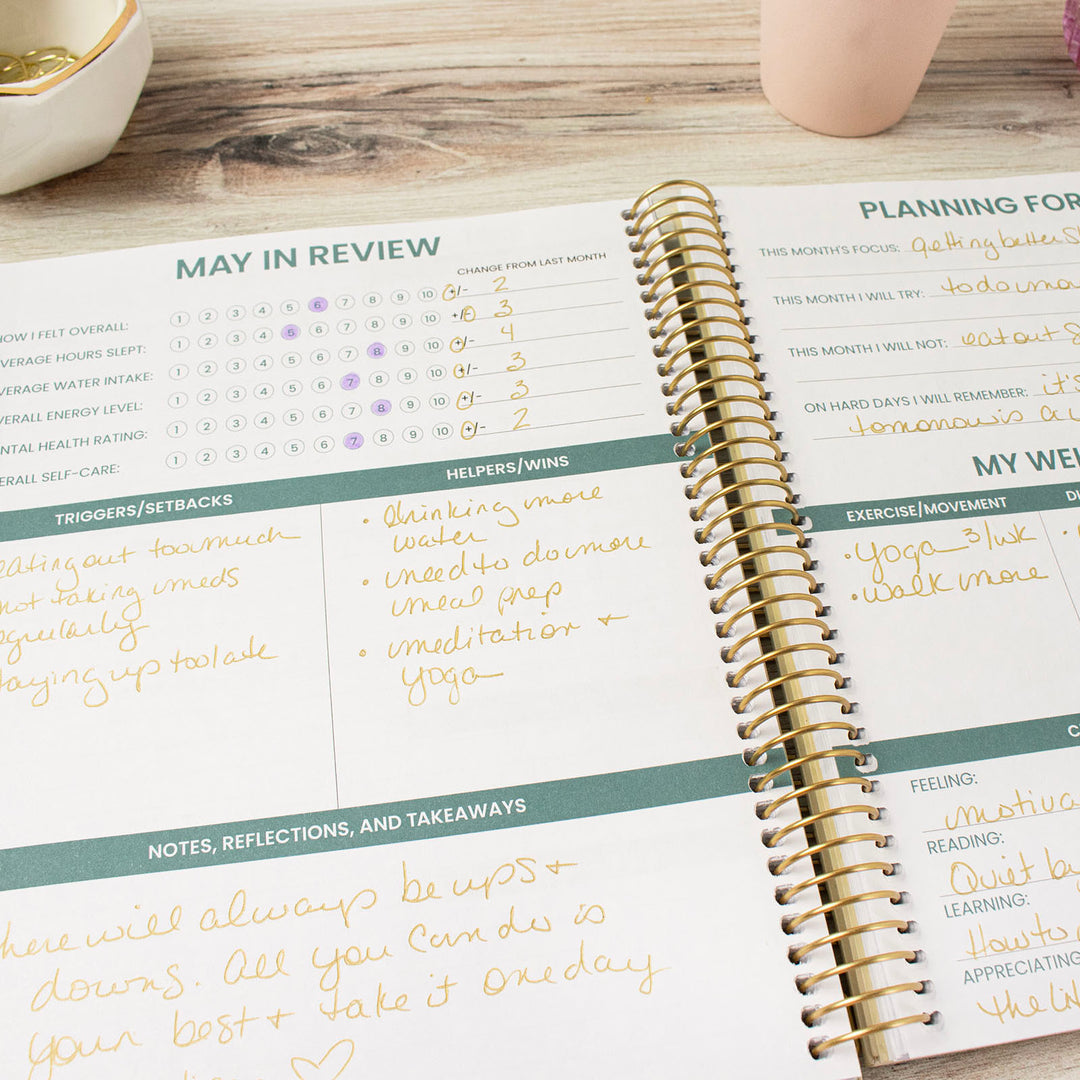 MAY IN REVIEW
CHANGE FROM LAST MONTH
HOW I FELT OVERALL: 1 2 3 4 5 6 7 8 9 10 +/- 2
AVERAGE HOURS SLEPT: 1 2 3 4 5 6 7 8 9 10 +/- 3
AVERAGE WATER INTAKE: 1 2 3 4 5 6 7 8 9 10 +/- 4
OVERALL ENERGY LEVEL: 1 2 3 4 5 6 7 8 9 10 +/- 3
MENTAL HEALTH RATING: 1 2 3 4 5 6 7 8 9 10 +/- 3
OVERALL SELF-CARE: 1 2 3 4 5 6 7 8 9 10 +/- 2
TRIGGERS/SETBACKS
eating out too much
not taking meds
regularly
staying up too late
HELPERS/WINS
• drinking more
water
• need to do more
meal prep
• meditation +
yoga
NOTES, REFLECTIONS, AND TAKEAWAYS
there will always be ups +
downs. All you can do is
your best + take it one day
PLANNING FOR
THIS MONTH'S FOCUS: getting better
THIS MONTH I WILL TRY: to do
THIS MONTH I WILL NOT: eat out
ON HARD DAYS I WILL REMEMBER: it's
tomorrow is a
MY
EXERCISE/MOVEMENT
• Yoga 3/wk
• walk more
FEELING:
READING:
Quiet
LEARNING:
How to
APPRECIATING
the